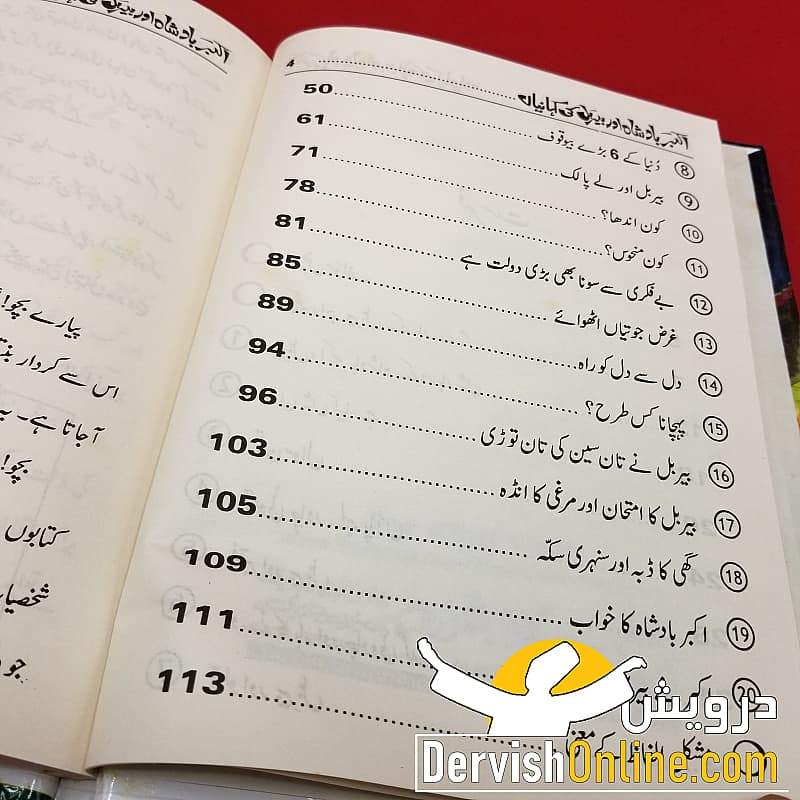 اکبر بادشاہ اور بیربل کی
پیارے بچو!
اس سے کردار
آجاتا ہے۔
بچو!
کتابوں
جو
اکبر بادشاہ اور بیربل کی کہانیاں 4
8 دُنیا کے 6 بڑے بیوقوف 50
9 بیربل اور لے پالک 61
10 کون اندھا؟ 71
11 کون منحوس؟ 78
12 بے فکری سے سونا بھی بڑی دولت ہے 81
13 غرض جوتیاں اٹھوائے 85
14 دل سے دل کو راہ 89
15 پہچانا کس طرح؟ 94
16 بیربل نے تان سین کی تان توڑی 96
17 بیربل کا امتحان اور مرغی کا انڈہ 103
18 گھی کا ڈبہ اور سنہری سکّہ 105
19 اکبر بادشاہ کا خواب 109
20 111
مشکل الفاظ کے 113
درویش
DervishOnline.com